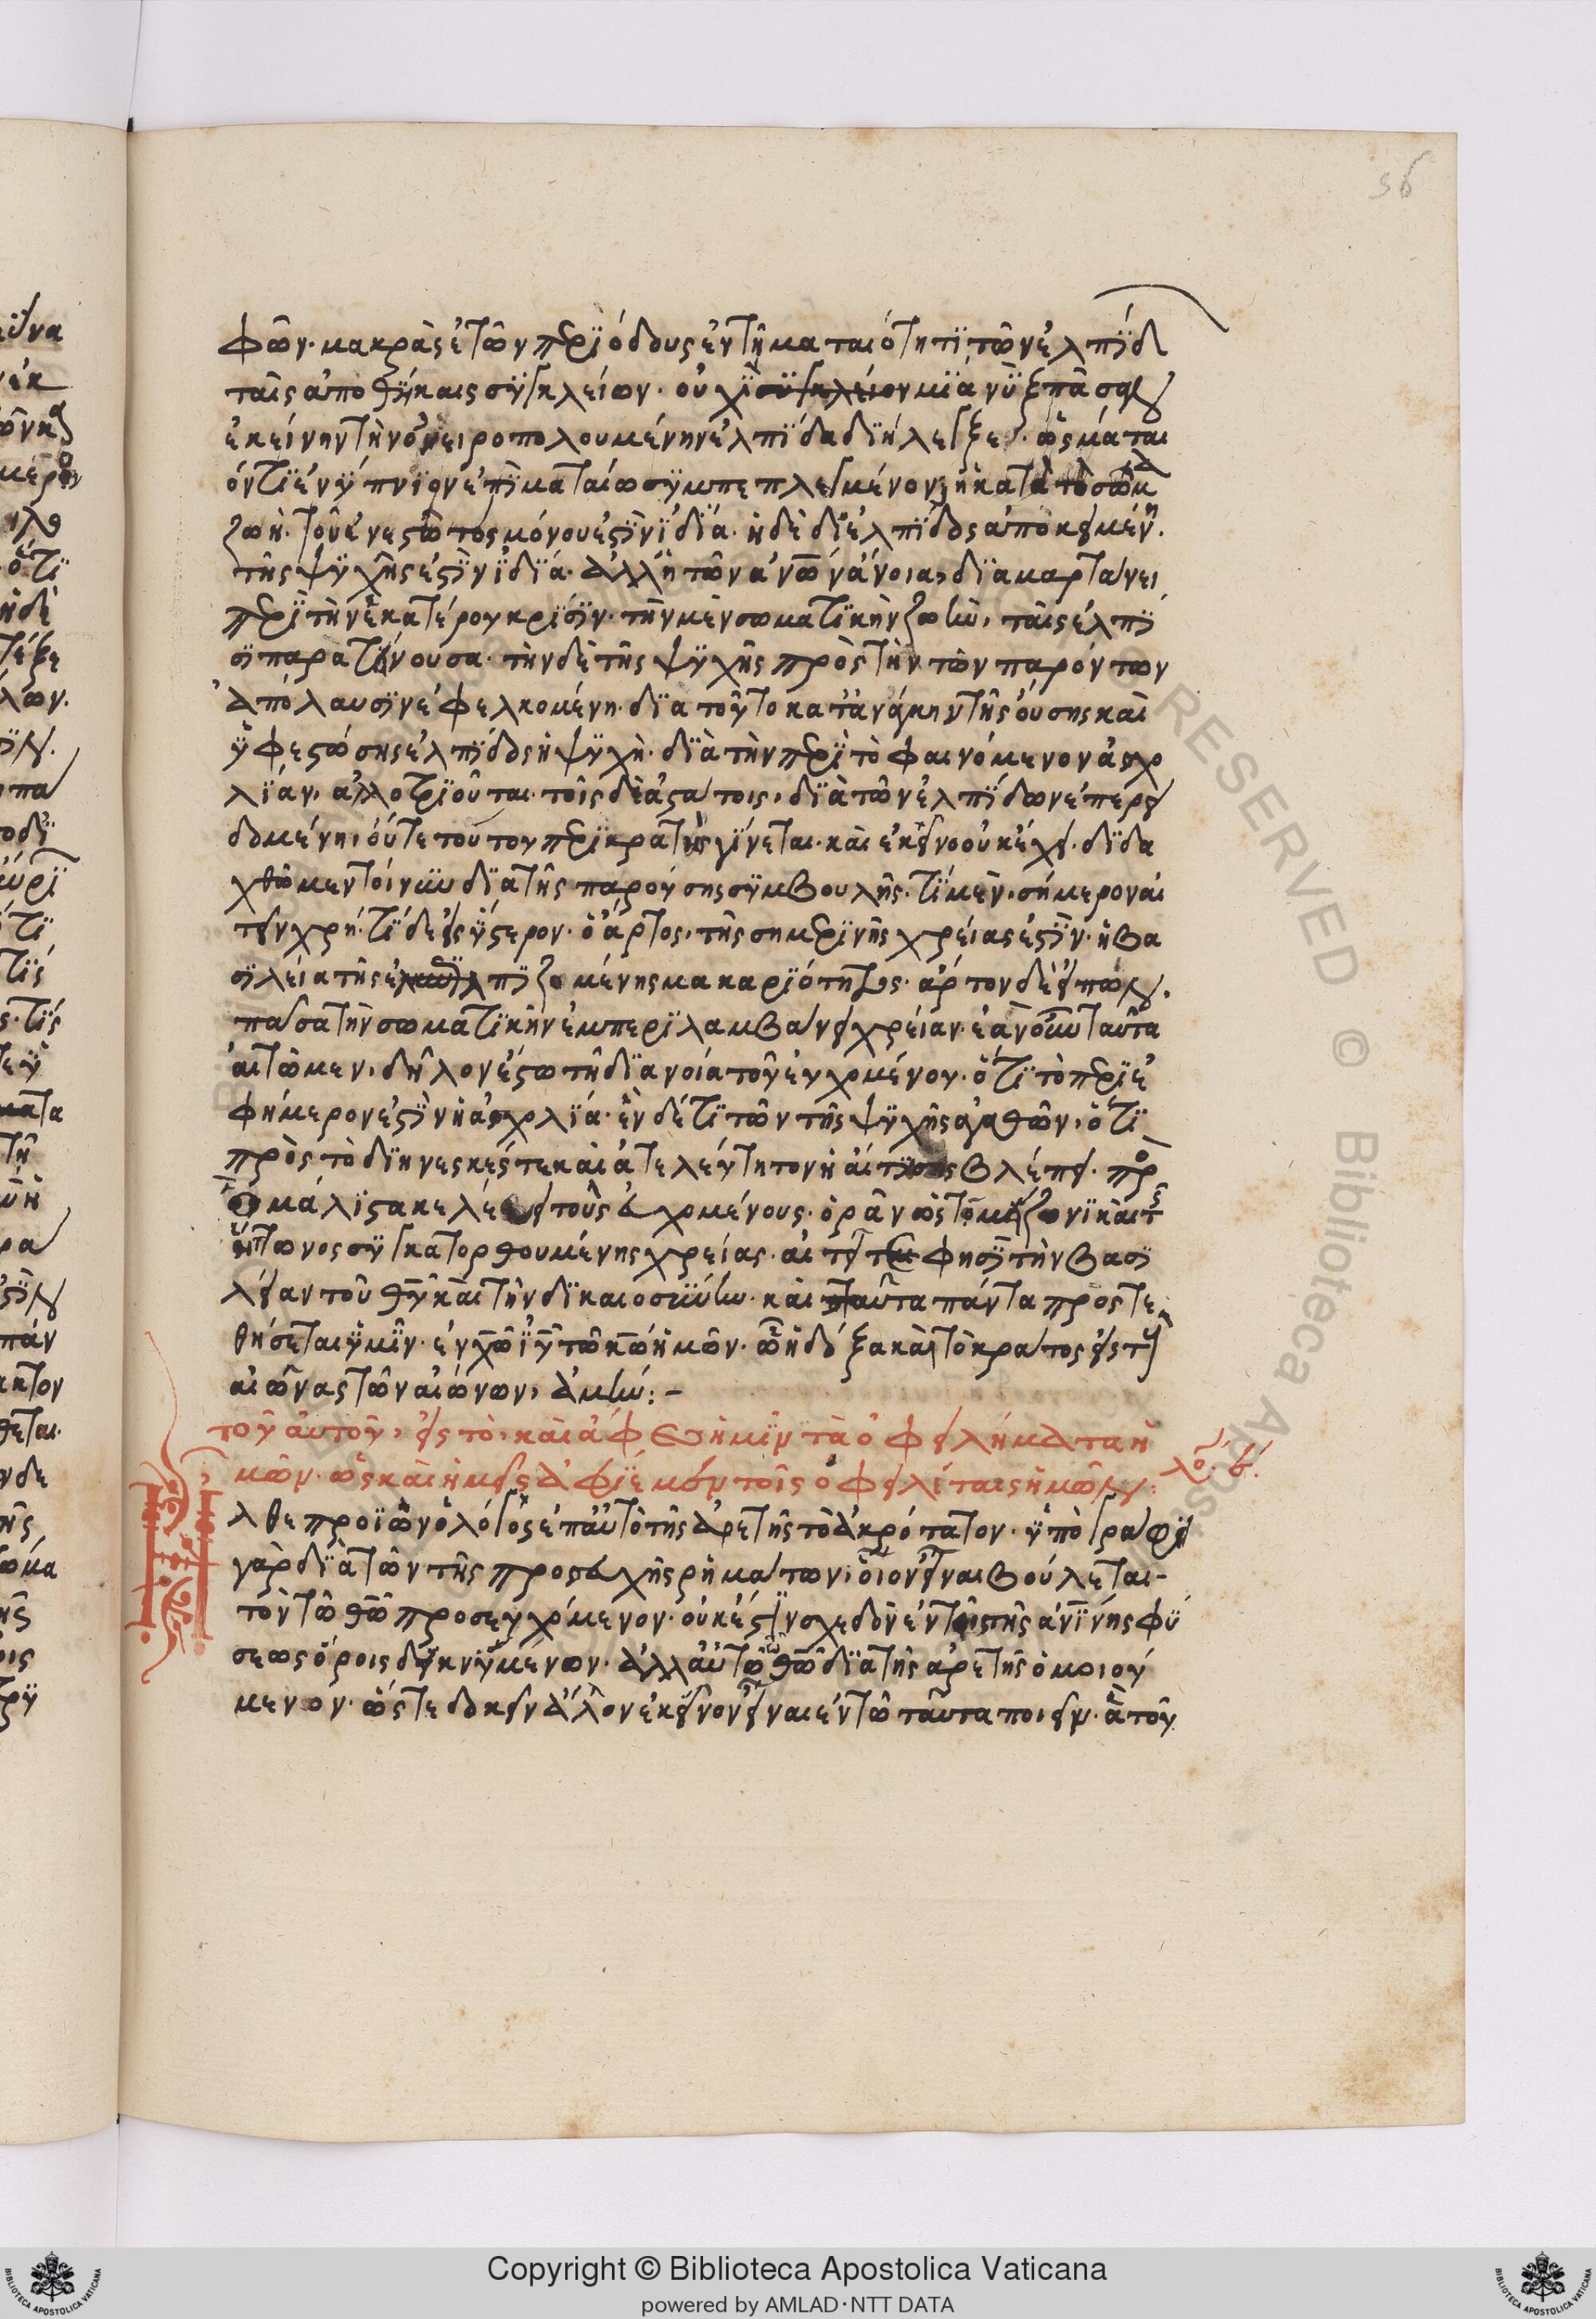 36
φῶν· μακρὰς ἐτῶν περϊόδους ἐν τῇ ματαιότητι τῶν ἐλπΐδ
ταῖς ἀποθήκαις συγκλείων· οὐχὶ μϊὰ νὺξ πᾶσαν
ἐκείνην τὴν ὀνειροπολουμένην ἐλπίδα διήλεγξεν· ὥς μάται
όν τι ἐνύπνϊον ἐπὶ ματαίω συμπεπλεγμένον; ἡ κατὰ τὸ σῶμ
ζωὴ· τοῦ ἐνεστῶτος μόνου ἐστὶν ἰδία· ἡ δὲ δι' ἐλπίδος ἀποκειμένη·
τῆς ψυχῆς ἐστὶν ἰδία· ἀλλ' ἡ τῶν ἀνῶν ἄνοια, διαμαρτάνει
περὶ τὴν ἑκατέρου κρίσιν· τὴν μὲν σωματικὴν ζωὴν, ταῖς ἐλπί
σι παρατείνουσα· τὴν δὲ τῆς ψυχῆς πρὸς τὴν τῶν παρόντων
ἀπόλαυσιν ἐφελκομένη· διατοῦτο κατ' ἀνάγκην τῆς οὔσης καὶ
ὑφεστώσης ἐλπίδος ἡ ψυχὴ· διὰ τὴν περὶ τὸ φαινόμενον ἀσχο
λίαν, ἀλλοτριοῦται· τοῖς δὲ ἀστάτοις, διὰ τῶν ἐλπίδων ἐπερει
δομένη, οὔτε τούτου περικρατὴς γίνεται· καὶ ἐκεῖνο οὐκ ἔχει· διδα
χθῶμεν τοίνυν διὰ τῆς παρούσης συμβουλῆς· τί μὲν, σήμερον αἰ
τεῖν χρή· τί δὲ εἰς ὕστερον· ὁ ἄρτος, τῆς σημερινῆς χρείας ἐστὶν· ἡ βα
σιλεία τῆς ἐλπιζομένης μακαριότητος· ἄρτον δὲ εἰπών,
πᾶσα τὴν σωματικὴν ἐμπεριλαμβάνει χρείαν· ἐὰν οὖν ταῦτα
αἰτῶμεν, δῆλον ἔστω τῇ διανοία τοῦ εὐχομένου· ὅτι τὸ περὶ ἐ
φήμερον ἐστὶν ἡ ἀσχολία· ἐὰν δέ τι τῶν τῆς ψυχῆς ἀγαθῶν, ὅτι
πρὸς τὸ διηνεκές τε καὶ ἀτελεύτητον ἡ αἴτησις βλέπει· πρ
ὃ μάλιστα κελεύει τοὺς εὐχομένους· ὁρᾶν ὡς τῶ μείζονι καὶ τ
ἥττονος συγκατορθουμένης χρείας· αἰτεῖτε φησὶ τὴν βασι
λείαν τοῦ θῦ καὶ τὴν δικαιοσύνην· καὶ ταῦτα πάντα προστε
θήσεται ὑμῖν· ἐν χῶ ἰῦ τῶ κῶ ἡμῶν· ὧ ἡ δόξα καὶ τὸ κράτος εἰς τοὺς
αἰῶνας τῶν αἰώνων, ἀμήν:-
τοῦ αὐτοῦ, εἰς τὸ, καὶ ἄφες ἡμῖν τὰ ὀφειλήματα ἡ
μῶν· ὡς καὶ ἡμεῖς ἀφίεμεν τοῖς ὀφειλέταις ἡμῶν: λό. ϛ.
Ἦλθε προϊὼν ὁ λόγος ἐπ' αὐτὸ τῆς ἀρετῆς τὸ ἀκρότατον· ὑπογράφει
γὰρ διὰ τῶν τῆς προσευχῆς ῥημάτων, οἷον εἶναι βούλεται-
τὸν τῶ θῶ προσευχόμενον· οὐκέτι ἐν σχεδὸν ἐν τοῖς τῆς ἀνίνης φύ
σεως ὅροις δεικνύμενων· ἀλλ' αὐτῶ τῶ θῶ διὰ τῆς ἀρετῆς ὁμοιού
μενον· ὥστε δοκεῖν ἄλλον ἐκεῖνον εἶναι ἐν τῶ ταῦτα ποιεῖν· ἃ τοῦ
Copyright © Biblioteca Apostolica Vaticana
powered by AMLAD·NTT DATA